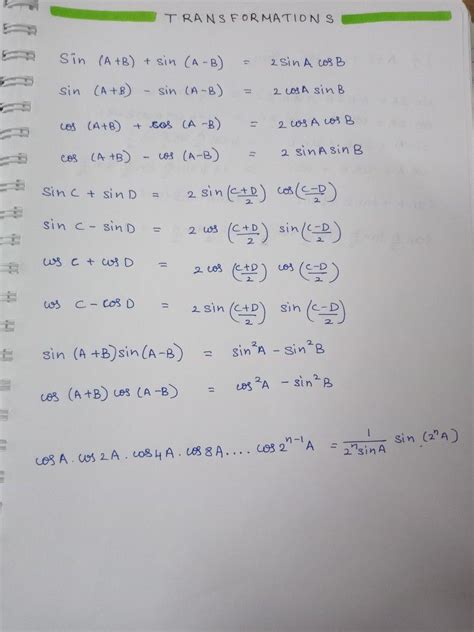 TRANSFORMATIONS
Sin (A+B) + sin (A-B) = 2 sinA cosB
sin (A+B) - sin (A-B) = 2 cosA sinB
cos (A+B) + cos (A-B) = 2 cosA cosB
cos (A+B) - cos (A-B) = 2 sinA sinB
Sin C + sin D = 2 sin (C+D/2) cos (C-D/2)
sin C - sin D = 2 cos (C+D/2) sin (C-D/2)
cos C + cos D = 2 cos (C+D/2) cos (C-D/2)
cos C - cos D = 2 sin (C+D/2) sin (C-D/2)
sin (A+B) sin (A-B) = sin²A - sin²B
cos (A+B) cos (A-B) = cos²A - sin²B
cosA . cos2A . cos4A . cos8A .... cos2ⁿ⁻¹A = 1/2ⁿsinA sin (2ⁿA)